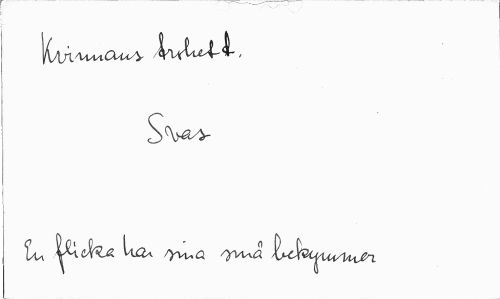 Kvinnans trohet.
Svas
En flicka har sina små bekymmer